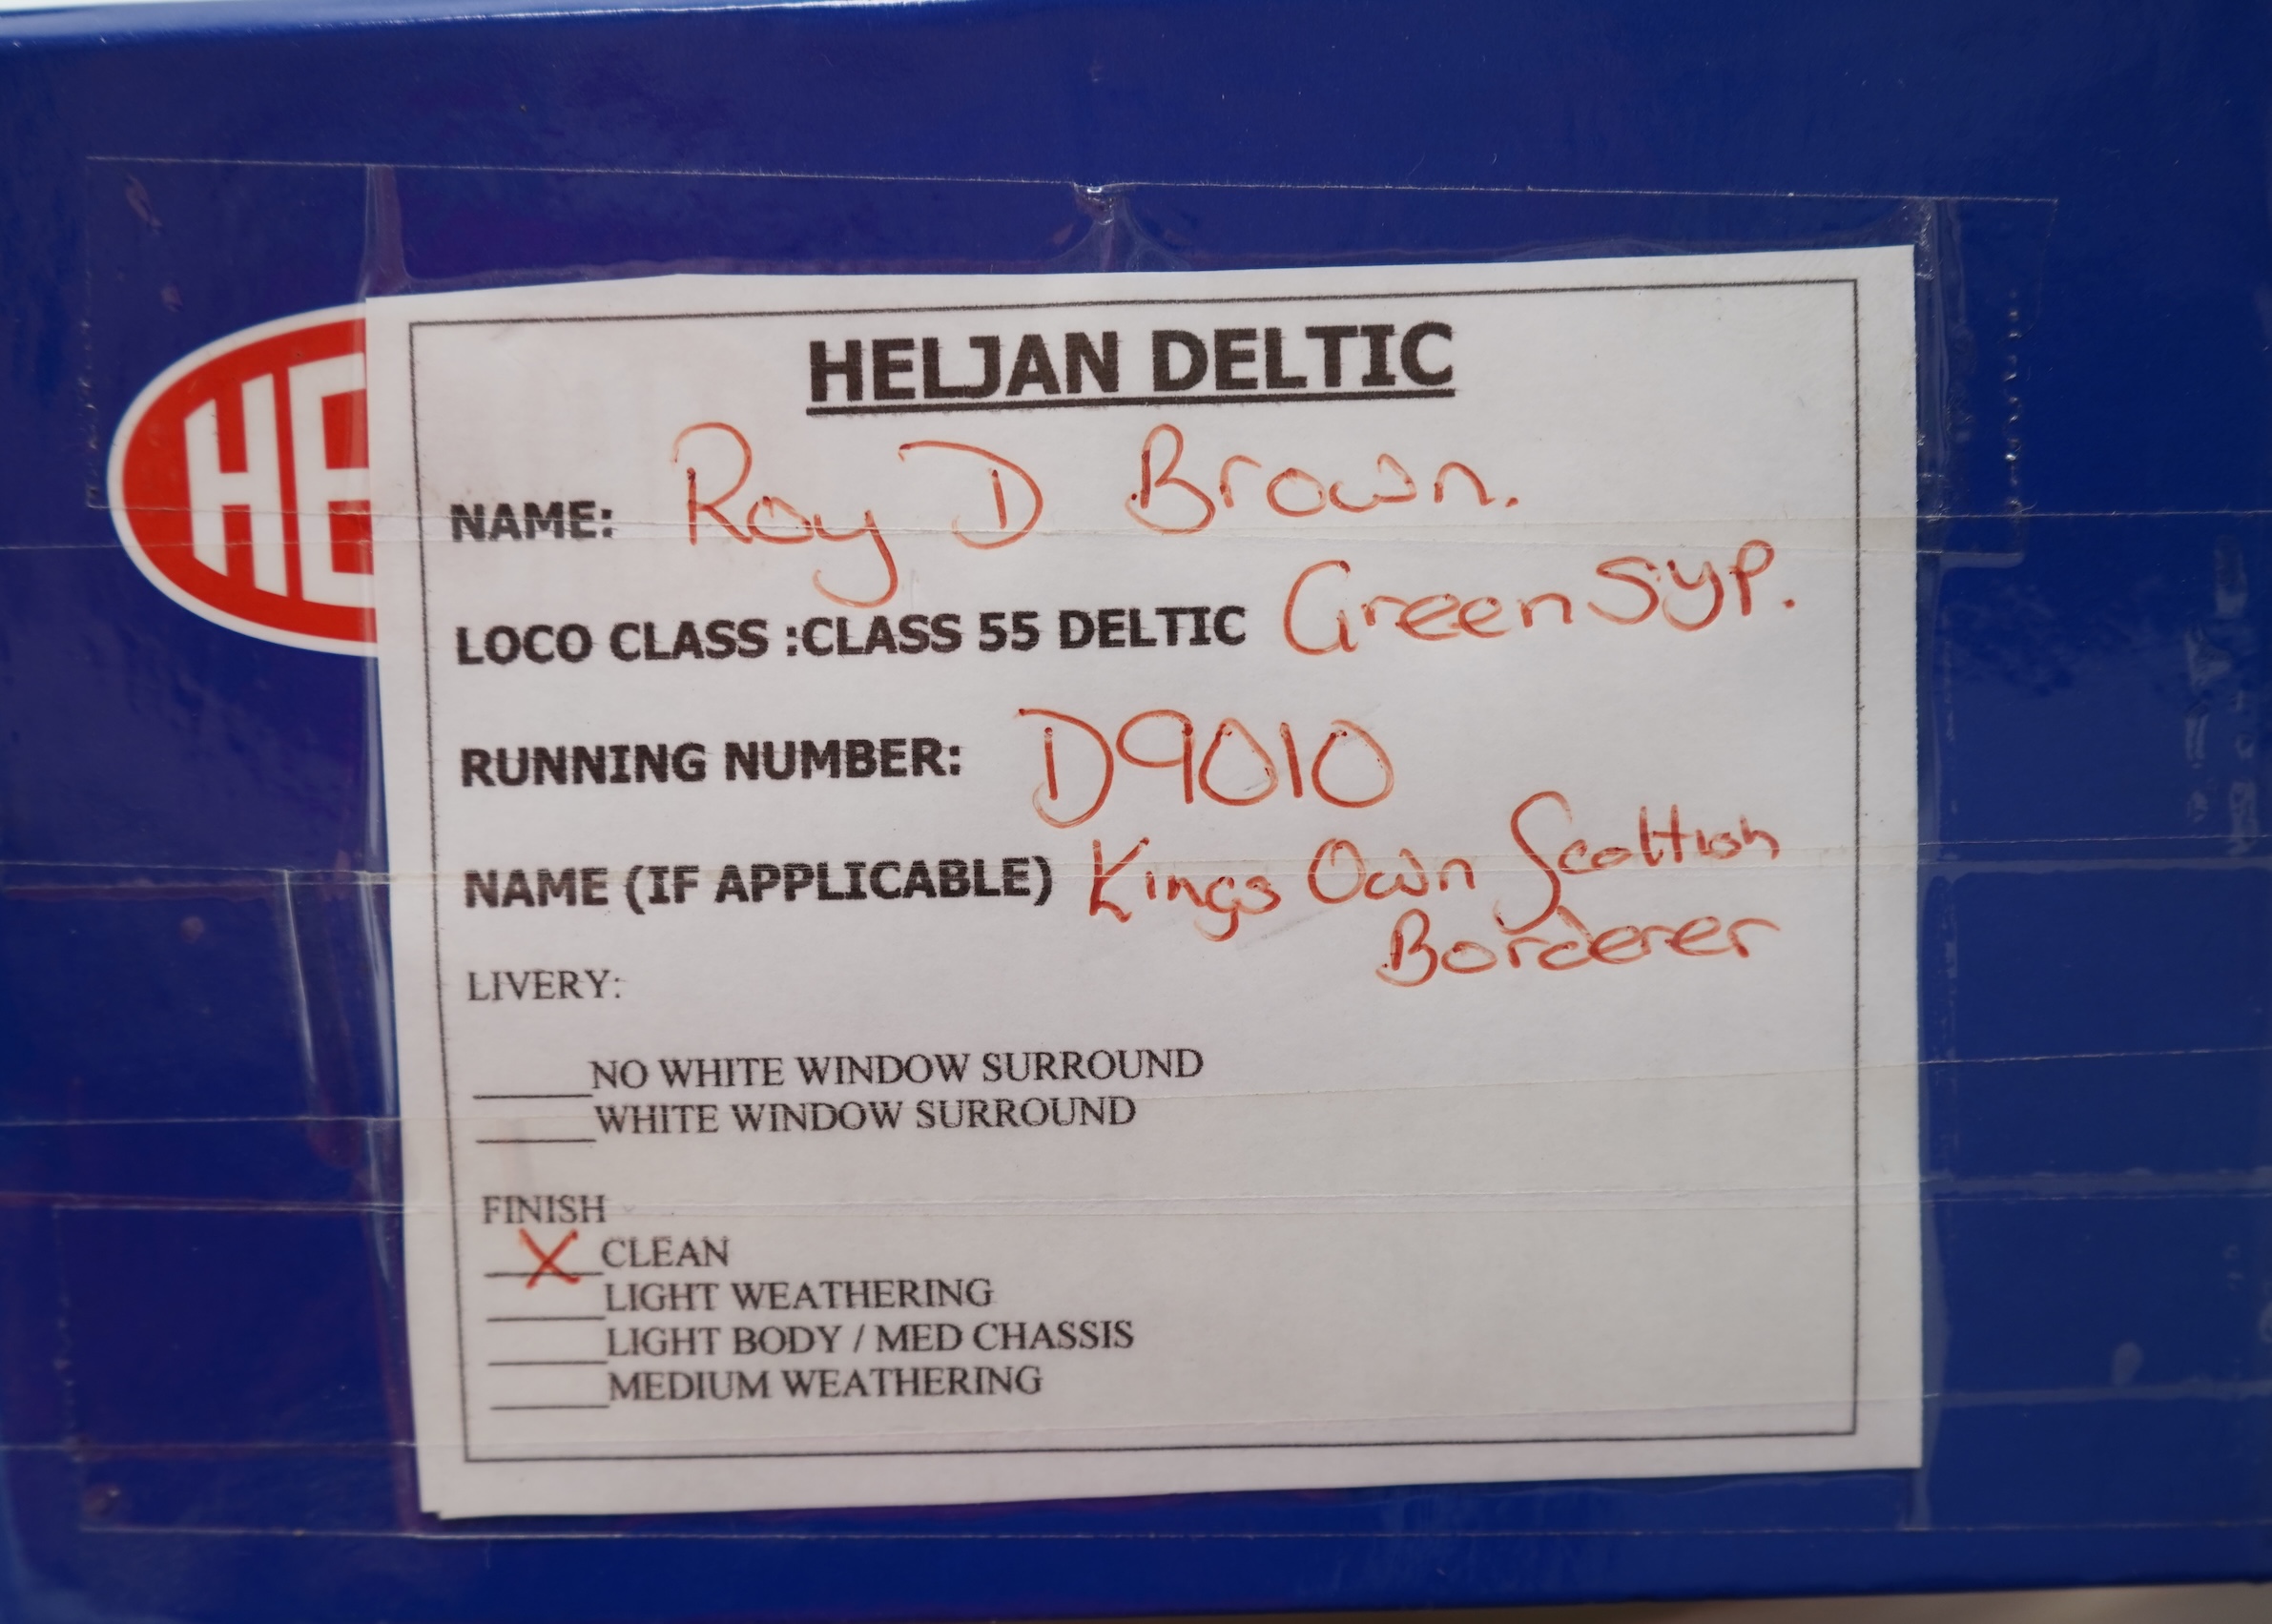 HE
HELJAN DELTIC
NAME: Roy D Brown.
LOCO CLASS :CLASS 55 DELTIC Green SYP.
RUNNING NUMBER: D9010
NAME (IF APPLICABLE) Kings Own Scottish
Borderer
LIVERY:
_____NO WHITE WINDOW SURROUND
_____WHITE WINDOW SURROUND
FINISH
__X__CLEAN
_____LIGHT WEATHERING
_____LIGHT BODY / MED CHASSIS
_____MEDIUM WEATHERING